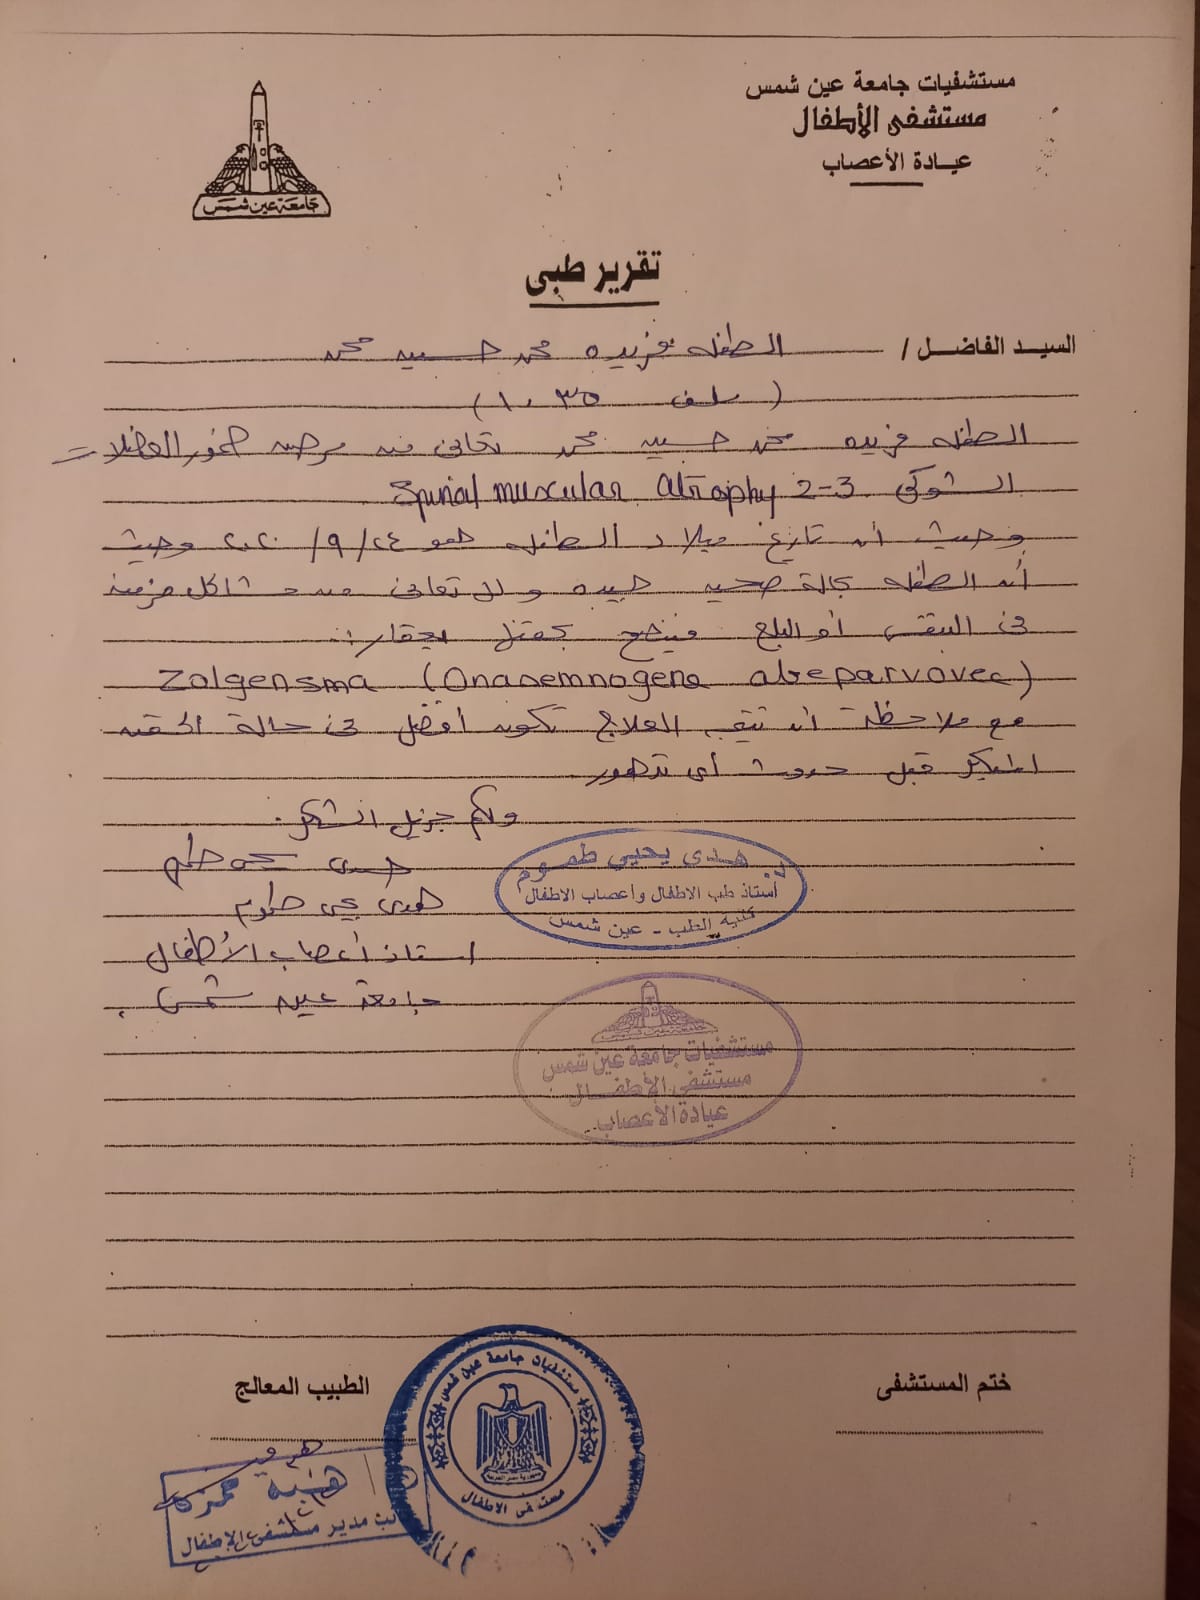 مستشفيات جامعة عين شمس
مستشفى الأطفال
عيادة الأعصاب
جامعة عين شمس
تقرير طبى
السيد الفاضل / الطفله فريده محمد حسين محمد
(ملف ١٠٣٥)
الطفله فريده محمد حسين محمد تعانى من مرض ضمور العضلات
الشوكى Spinal muscular Atrophy 2-3
وحيث أن تاريخ ميلاد الطفله هو ٢٤/٩/٢٠٢٠ وحيث
أن الطفله بحالة صحيه جيده ولا تعانى من مشاكل مزمنه
فى التنفس أو البلع فينصح بحقنها بعقار:
Zolgensma (Onasemnogene abeparvovec)
مع ملاحظة أن نتيجة العلاج تكون أفضل فى حالة الحقن
المبكر قبل حدوث أى تدهور
ولكم جزيل الشكر.
هدى يحيى طموم
هدى يحيى طموم
استاذ أعصاب الأطفال
جامعة عين شمس.
د. هدى يحيى طموم
أستاذ طب الاطفال وأعصاب الاطفال
كلية الطب - عين شمس
مستشفيات جامعة عين شمس
مستشفى الأطفال
عيادة الأعصاب
ختم المستشفى
الطبيب المعالج
مستشفيات جامعة عين شمس
جمهورية مصر العربية
مستشفى الاطفال
مدير مستشفى الاطفال